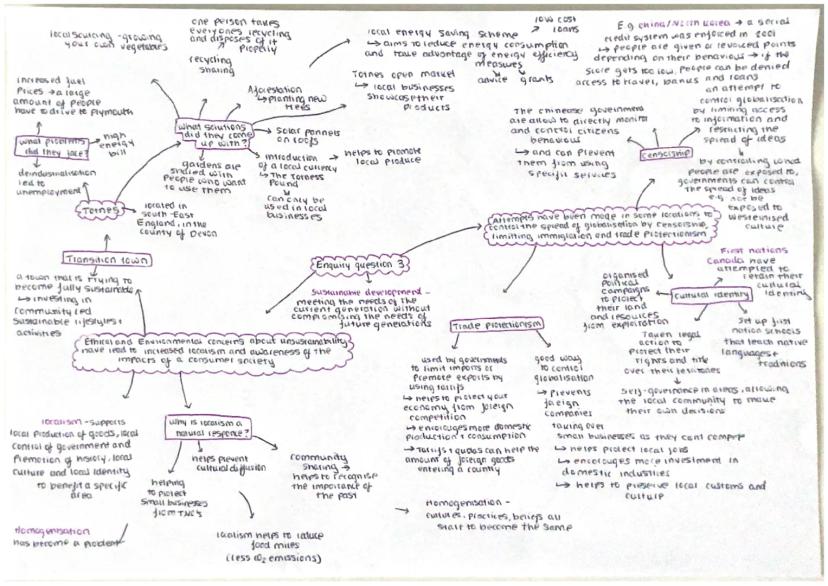 local sourcing - growing
your own vegetables
one person takes
everyones recycling
and disposes of it
properly
recycling
sharing
Afforestation
↳ planting new
trees
local energy saving scheme
↳ aims to reduce energy consumption
and take advantage of energy efficiency
measures
low cost
loans
advice
grants
Totnes open market
↳ local businesses
showcase their
products
E.g China/
→ a social
credit system was enforced in
↳ people are given or revoked points
depending on their behaviour → if the
score gets too low, people can be denied
access to travel, banks and loans
increased fuel
prices → a large
amount of people
have to drive to plymouth
what problems
did they face?
high
energy
bill
deindustrialisation
led to
unemployment
what solutions
did they come
up with?
solar pannels
on roofs
introduction
of a local currency
↳ The Totness
Pound
↳ can only be
used in local
businesses
→ helps to promote
local produce
gardens are
shared with
people who want
to use them
Totnes
located in
south-East
England, in the
county of Devon
The chinese government
are allow to directly monitor
and control citizens
behaviour
↳ and can prevent
them from using
specific services
censorship
an attempt to
control globalisation
by limiting access
to information and
restricting the
spread of ideas
by controlling what
people are exposed to,
governments can control
the spread of ideas
e.g. not be
exposed to
westernised
culture
Transition town
a town that is trying to
become fully sustainable
↳ investing in
community led
sustainable lifestyles +
activities
Enquiry question 3
Attempts have been made in some locations to
control the spread of globalisation by censorship,
limiting immigration and trade Protectionism
Sustainable development -
meeting the needs of the
current generation without
compromising the needs of
future generations
Ethical and Environmental concerns about unsustainability
have lead to increased localism and awareness of the
impacts of a consumer society
Trade protectionism
used by governments
to limit imports or
promote exports by
using tariffs
↳ helps to protect your
economy from foreign
competition
↳ encourages more domestic
production + consumption
↳ Tariffs + quotas can help the
amount of foreign goods
entering a country
good ways
to control
globalisation
↳ prevents
foreign
companies
taking over
small businesses as they cant compete
↳ helps protect local jobs
↳ encourages more investment in
domestic industries
↳ helps to preserve local customs and
culture
Cultural identity
First nations
Canada have
attempted to
retain their
cultural
identity
organised
political
campaigns
to protect
their land
and resources
from exploration
Taken legal
action to
protect their
rights and title
over their territories
↳ self-governance in areas, allowing
the local community to make
their own decisions
Set up first
nation schools
that teach native
languages +
traditions
localism - supports
local production of goods, local
control of government and
promotion of history, local
culture and local identity
to benefit a specific
area
Homogenisation
has become a problem
why is localism a
natural response?
helping
to protect
small businesses
from TNC's
helps prevent
cultural diffusion
community
sharing →
helps to recognise
the importance
of the past
localism helps to reduce
food miles
(less CO2 emissions)
→ Homogenisation -
cultures, practices, beliefs all
start to become the same